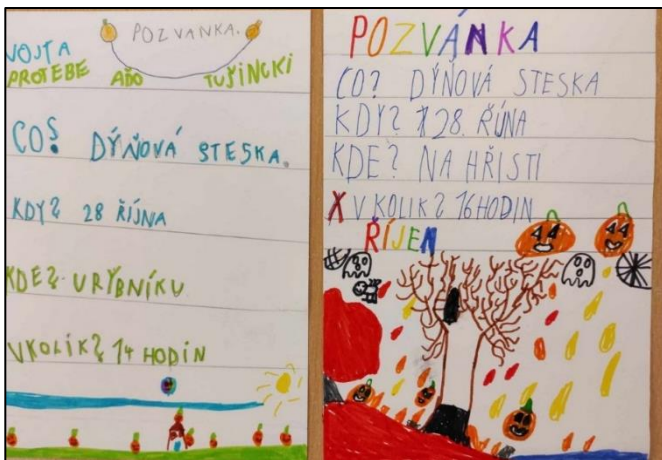 POZVANKA.
VOJTA
PROTEBE AĎO TUŘINCKI
CO? DÝŇOVÁ STESKA.
KDY? 28 ŘÍJNA
KDE? URYBNÍKU
VKOLIK? 14 HODIN
POZVÁNKA
CO? DÝŇOVÁ STESKA
KDY? 28. ŘÚNA
KDE? NA HŘISTI
X V KOLIK? 16 HODIN
ŘÍJEN